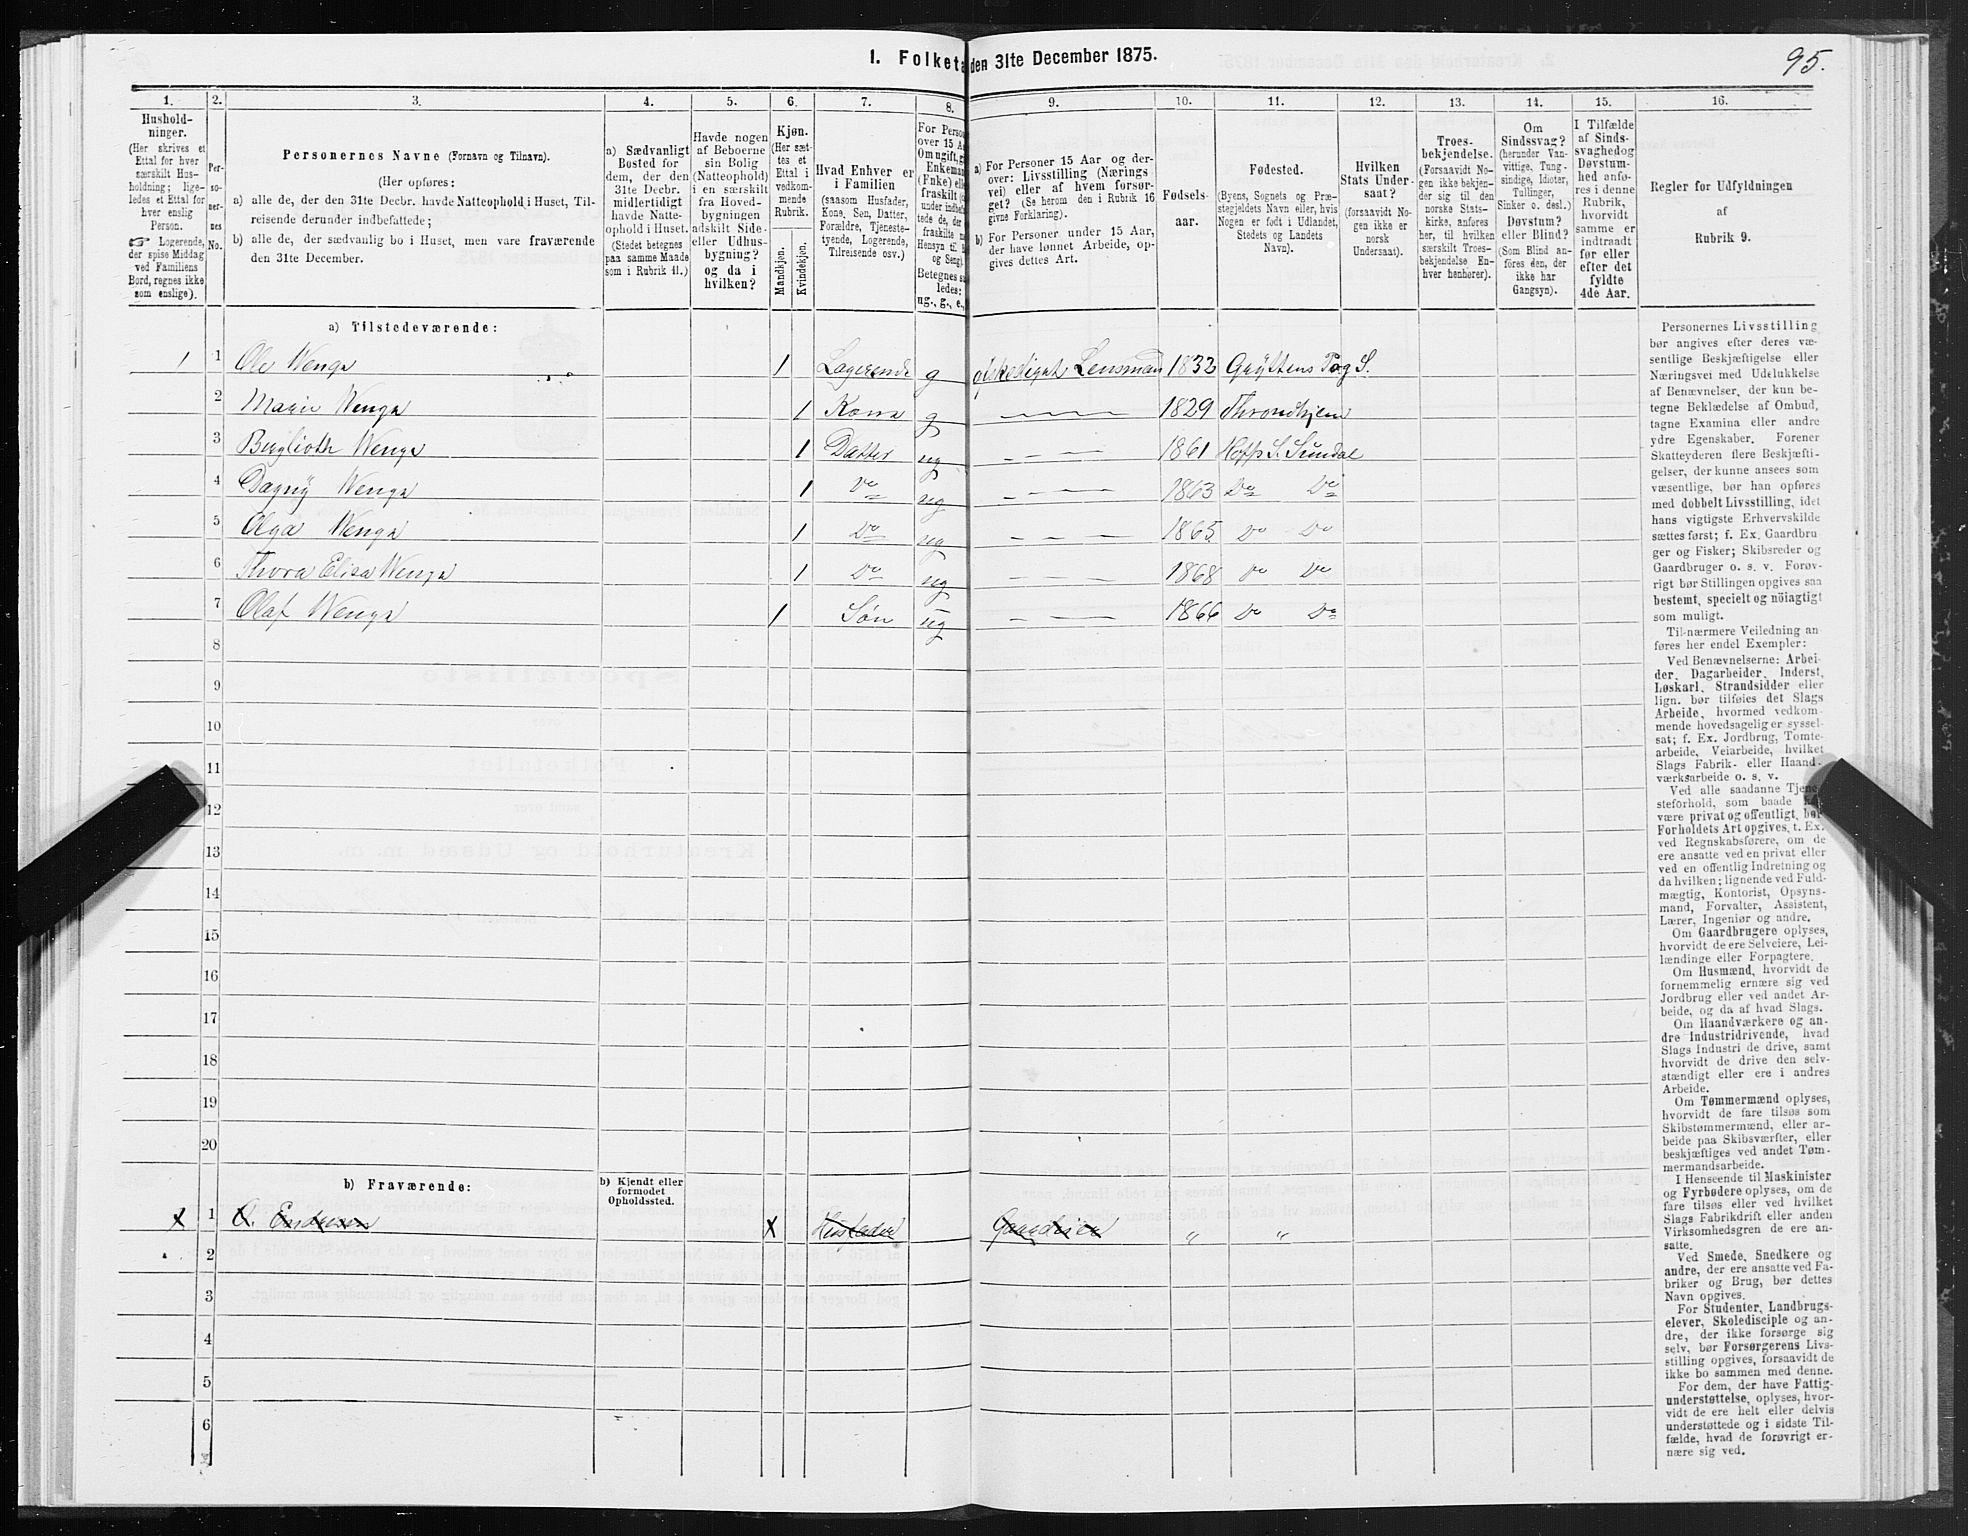 1. Folketa den 31te December 1875.
95.
1. 2. 3. 4. 5. 6. 7. 8. 9. 10. 11. 12. 13. 14. 15. 16.
Hushold-
ninger.
(Her skrives et
Ettal for hver
særskilt Hus-
holdning; lige-
ledes et Ettal for
hver enslig
Person.
☞ Logerende,
der spise Middag
ved Familiens
Bord, regnes ikke
som enslige).
Per-
so-
ner-
nes
No.
Personernes Navne (Fornavn og Tilnavn).
(Her opføres:
a) alle de, der den 31te Decbr. havde Natteophold i Huset, Til-
reisende derunder indbefattede;
b) alle de, der sædvanlig bo i Huset, men vare fraværende
den 31te December.
a) Sædvanligt
Bosted for
dem, der den
31te Decbr.
midlertidigt
havde Natte-
ophold i Huset.
(Stedet betegnes
paa samme Maade
som i Rubrik 11.)
Havde nogen
af Beboerne
sin Bolig
(Natteophold)
i en særskilt
fra Hoved-
bygningen
adskilt Side-
eller Udhus-
bygning?
og da i
hvilken?
Kjøn.
(Her sæt-
tes et
Ettal i
vedkom-
mende
Rubrik.
Mandkjøn.
Kvindekjøn.
Hvad Enhver er
i Familien
(saasom Husfader,
Kone, Søn, Datter,
Forældre, Tjeneste-
tyende, Logerende,
Tilreisende osv.)
For Perso
over 15 A
Om ugift, g
Enkeman
(Enke) ell
fraskilt (
under indbef
tede de, der
fraskilte m
Hensyn til B
og Seng).
Betegnes s
ledes:
ug., g., e.,
a) For Personer 15 Aar og der-
over: Livsstilling (Nærings
vei) eller af hvem forsør-
get? (Se herom den i Rubrik 16
givne Forklaring).
b) For Personer under 15 Aar,
der have lønnet Arbeide, op-
gives dettes Art.
Fødsels-
aar.
Fødested.
(Byens, Sognets og Præ-
stegjeldets Navn eller, hvis
Nogen er født i Udlandet,
Stedets og Landets
Navn).
Hvilken
Stats Under-
saat?
(forsaavidt No-
gen ikke er
norsk
Undersaat).
Troes-
bekjendelse.
(Forsaavidt No-
gen ikke bekjen-
der sig til den
norske Stats-
kirke, anføres
her, til hvilken
særskilt Troes-
bekjendelse En-
hver henhører).
Om
Sindssvag?
(herunder Van-
vittige, Tung-
sindige, Idioter,
Tullinger,
Sinker o. desl.)
Døvstum?
eller Blind?
(Som Blind an-
føres den, der
ikke har
Gangsyn).
I Tilfælde
af Sinds-
svaghed og
Døvstum-
hed anfø-
res i denne
Rubrik,
hvorvidt
samme er
indtraadt
før eller
efter det
fyldte
4de Aar.
Regler for Udfyldningen
af
Rubrik 9.
a) Tilstedeværende:
1 1 Ole Wenga 1 Logerende g afskediget Lensmand 1832 Gryttens Præg S.
2 Marie Wenga 1 Kona g 1829 Throndhjem
3 Wenga 1 Datter ug 1861 Hofs S. Sundal
4 Dagny Wenga 1 Do ug 1863 Do Do
5 Olga Wenga 1 Do ug 1865 Do Do
6 Thora Elisa Wenga 1 Do ug 1868 Do Do
7 Olaf Wenga 1 Søn ug 1866 Do Do
8
9
10
11
12
13
14
15
16
17
18
19
20
b) Fraværende:
b) Kjendt eller
formodet
Opholdssted.
1 O. Endresen Husfader Gaardeier " "
2
3
4
5
6
Personernes Livsstilling
bør angives efter deres væ-
sentlige Beskjæftigelse eller
Næringsvei med Udelukkelse
af Benævnelser, der kun be-
tegne Beklædelse af Ombud,
tagne Examina eller andre
ydre Egenskaber. Forener
Skatteyderen flere Beskjæfti-
gelser, der kunne ansees som
væsentlige, bør han opføres
med dobbelt Livsstilling, idet
hans vigtigste Erhvervskilde
sættes først; f. Ex. Gaardbru
ger og Fisker; Skibsreder og
Gaardbruger o. s. v. Forøv-
rigt bør Stillingen opgives saa
bestemt, specielt og nöiagtigt
som muligt.
Til nærmere Veiledning an-
føres her endel Exempler:
Ved Benævnelserne: Arbei-
der, Dagarbeider, Inderst,
Løskarl, Strandsidder eller
lign. bør tilføies det Slags
Arbeide, hvormed vedkom-
mende hovedsagelig er syssel-
sat; f. Ex. Jordbrug, Tomte-
arbeide, Veiarbeide, hvilket
Slags Fabrik- eller Haand-
værksarbeide o. s. v.
Ved alle saadanne Tjene
steforhold, som baade ka
være privat og offentligt, bør
Forholdets Art opgives, t. Ex.
ved Regnskabsførere, om de
ere ansatte ved en privat eller
ved en offentlig Indretning og
da hvilken; lignende ved Fuld-
mægtig, Kontorist, Opsyns-
mand, Forvalter, Assistent,
Lærer, Ingeniør og andre.
Om Gaardbrugere oplyses,
hvorvidt de ere Selveiere, Lei-
lændinge eller Forpagtere.
Om Husmænd, hvorvidt de
fornemmelig ernære sig ved
Jordbrug eller ved andet Ar-
beide, og da af hvad Slags.
Om Haandværkere og an-
dre Industridrivende, hvad
Slags Industri de drive, samt
hvorvidt de drive den selv-
stændigt eller ere i andres
Arbeide.
Om Tømmermænd oplyses,
hvorvidt de fare tilsøs som
Skibstømmermænd, eller ar-
beide paa Skibsværfter, eller
beskjæftiges ved andet Tøm-
mermandsarbeide.
I Henseende til Maskinister
og Fyrbødere oplyses, om de
fare tilsøs eller ved hvilket
Slags Fabrikdrift eller anden
Virksomhedsgren de ere an-
satte.
Ved Smede, Snedkere og
andre, der ere ansatte ved Fa-
briker og Brug, bør dettes
Navn opgives.
For Studenter, Landbrugs-
elever, Skoledisciple og an-
dre, der ikke forsørge sig
selv, bør Forsørgerens Livs-
stilling opgives, forsaavidt de
ikke bo sammen med denne.
For dem, der have Fattig-
understøttelse, oplyses, hvor-
vidt de ere helt eller delvis
understøttede og i sidste Til-
fælde, hvad de forøvrigt er-
nære sig ved.